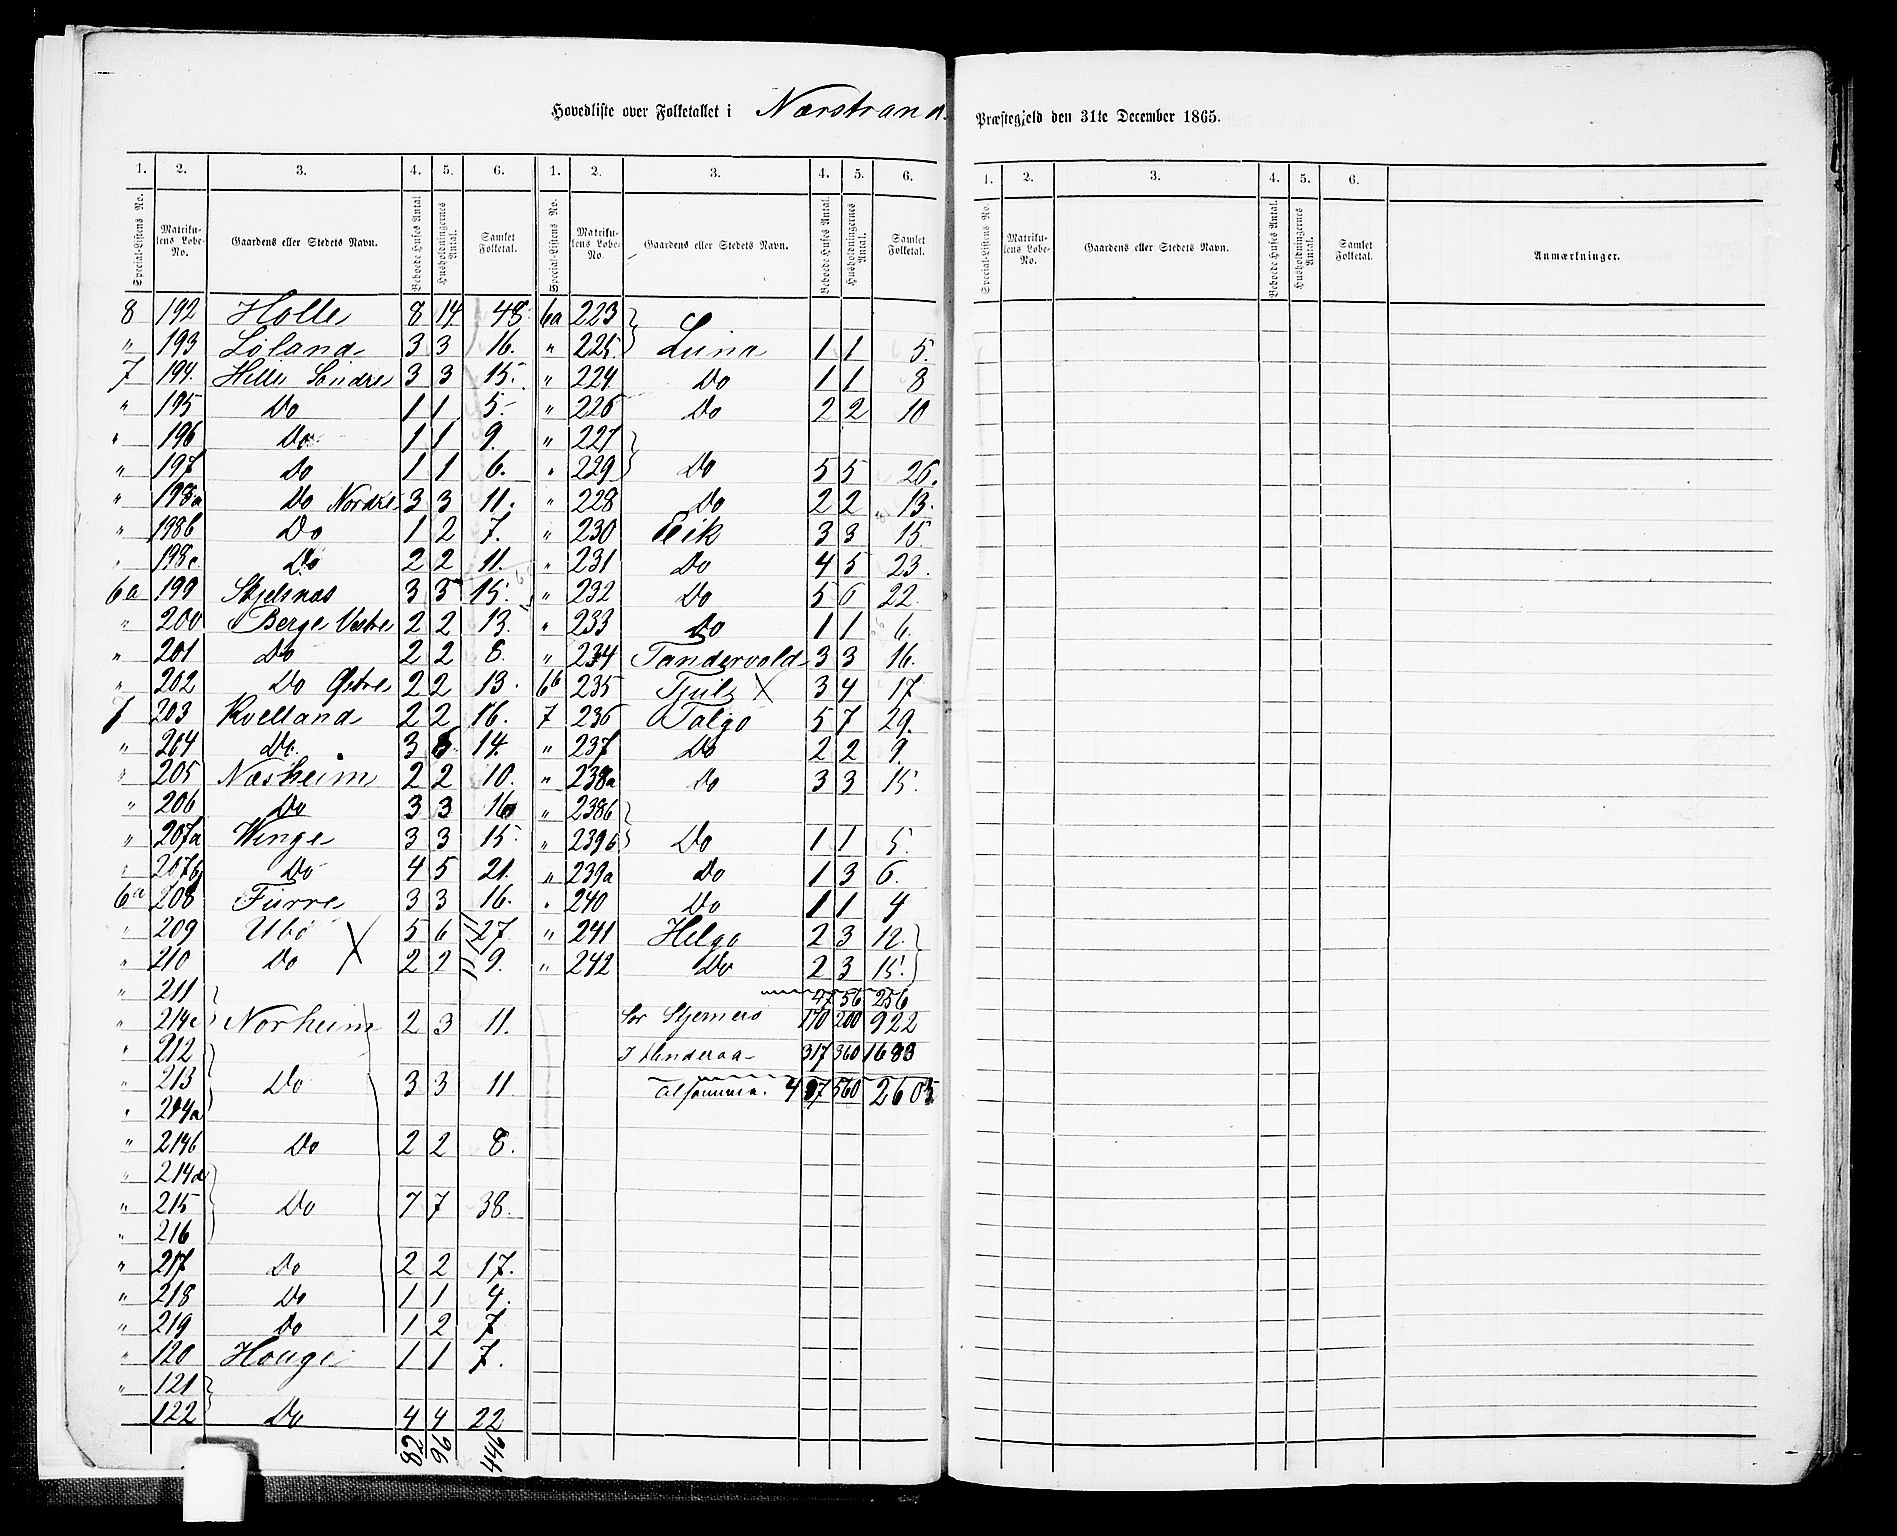 Hovedliste over Folketallet i Nærstrand Præstegjeld den 31te December 1865.
1. 2. 3. 4. 5. 6. 1. 2. 3. 4. 5. 6.
Special-Listens No. Matrikulens Løbe-No. Gaardens eller Stedets Navn. Beboede Huses Antal. Husholdningernes Antal. Samlet Folketal. Special-Listens No. Matrikulens Løbe-No. Gaardens eller Stedets Navn. Beboede Huses Antal. Husholdningernes Antal. Samlet Folketal.
8 192 Halle 8 14 48.
„ 193 Löland 3 3 16.
7 194. Helle Søndre 3 3 15.
„ 195 Do 1 1 5.
„ 196 Do 1 1 9.
„ 197 Do 1 1 6.
„ 198a Do Nordre 3 3 11.
„ 198b Do 1 2 7.
„ 198c. Do 2 2 11.
6a 199 Skjelsnæs 3 3 15.
„ 200 Berge Vestre 2 2 13.
„ 201 Do 2 2 8.
„ 202 Do Østre 2 2 13.
7 203 Kvelland 2 2 16.
„ 204 Do. 3 14.
„ 205 Næsheim 2 2 10.
„ 206 Do 3 3 16
„ 207a Winge 3 3 15.
„ 207b Do 4 5 21.
6a 208 Furre 3 3 16.
„ 209 Ubø 5 6 27.
„ 210 Do 2 2 9.
„ 211
„ 214c Norheim 2 3 11.
„ 212
„ 213 Do 3 3 11
„ 214a
„ 214b Do 2 2 8.
„ 214d
„ 215 Do 7 7 38.
„ 216
„ 217 Do 2 2 17.
„ 218 Do 1 1 4.
„ 219 Do 1 2 7
„ 120 Houge 1 1 7.
„ 121
122 Do 4 4 22
82 96 446
6a 223
„ 225. Leina 1 1 5.
„ 224. Do 1 1 8
„ 226 Do 2 2 10
„ 227
„ 229 Do 5 5 26.
„ 228 Do 2 2 13.
„ 230 Eik 3 3 15
„ 231 Do 4 5 23.
„ 232 Do 5 6 22.
„ 233 Do 1 1 6.
„ 234 Tandervold 3 3 16.
6b 235 X 3 4 17
7 236 Talgø 5 7 29.
„ 237 Do 2 2 9.
„ 238a Do 3 3 15.
„ 238b
„ 239b Do 1 1 5.
„ 239a Do 1 3 6.
„ 240 Do 1 1 4
„ 241 Helgø 2 3 12.
„ 242 Do 2 3 15.
47 56 256
for Sjernerø 170 200 922
I Hinderaa 317 360 1683
560 2605.
1. 2. 3. 4. 5. 6.
Special-Listens No. Matrikulens Løbe-No. Gaardens eller Stedets Navn. Beboede Huses Antal. Husholdningernes Antal. Samlet Folketal. Anmærkninger.